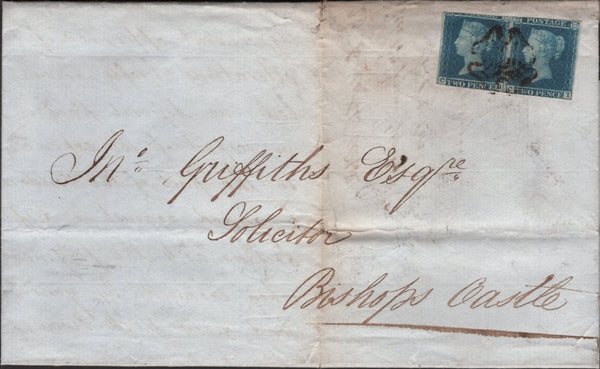 POSTAGE
TWO PENCE TWO PENCE
Jno Griffiths Esqre
Solicitor
Bishops Castle